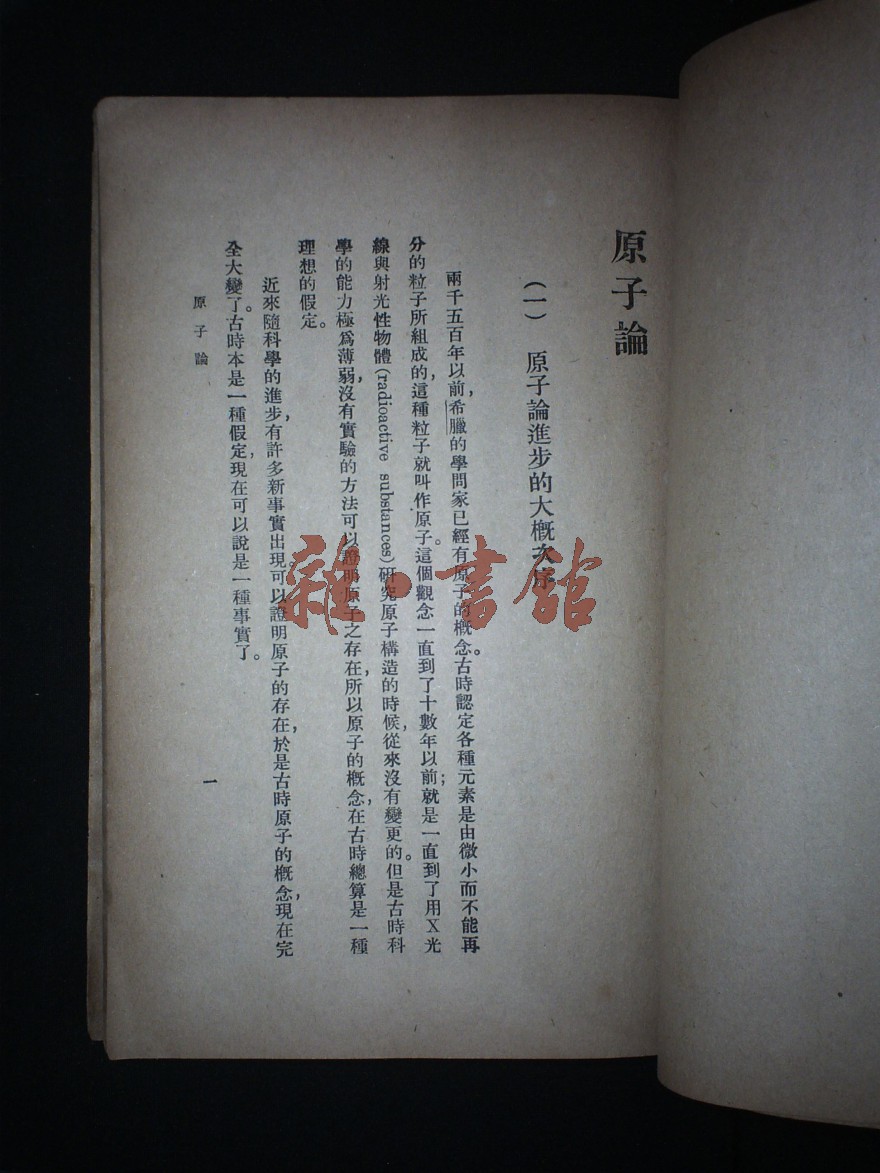 原子論
(一)　原子論進步的大槪次序
兩千五百年以前,希臘的學問家已經有原子的槪念。古時認定各種元素是由微小而不能再
分的粒子所組成的,這種粒子就叫作原子。這個觀念一直到了十數年以前;就是一直到了用X光
線與射光性物體(radioactive substances)研究原子構造的時候,從來沒有變更的。但是古時科
學的能力極爲薄弱,沒有實驗的方法可以證明原子之存在,所以原子的槪念,在古時總算是一種
理想的假定。
近來隨科學的進步,有許多新事實出現,可以證明原子的存在,於是古時原子的槪念,現在完
全大變了。古時本是一種假定,現在可以說是一種事實了。
原子論
一
雜·書館